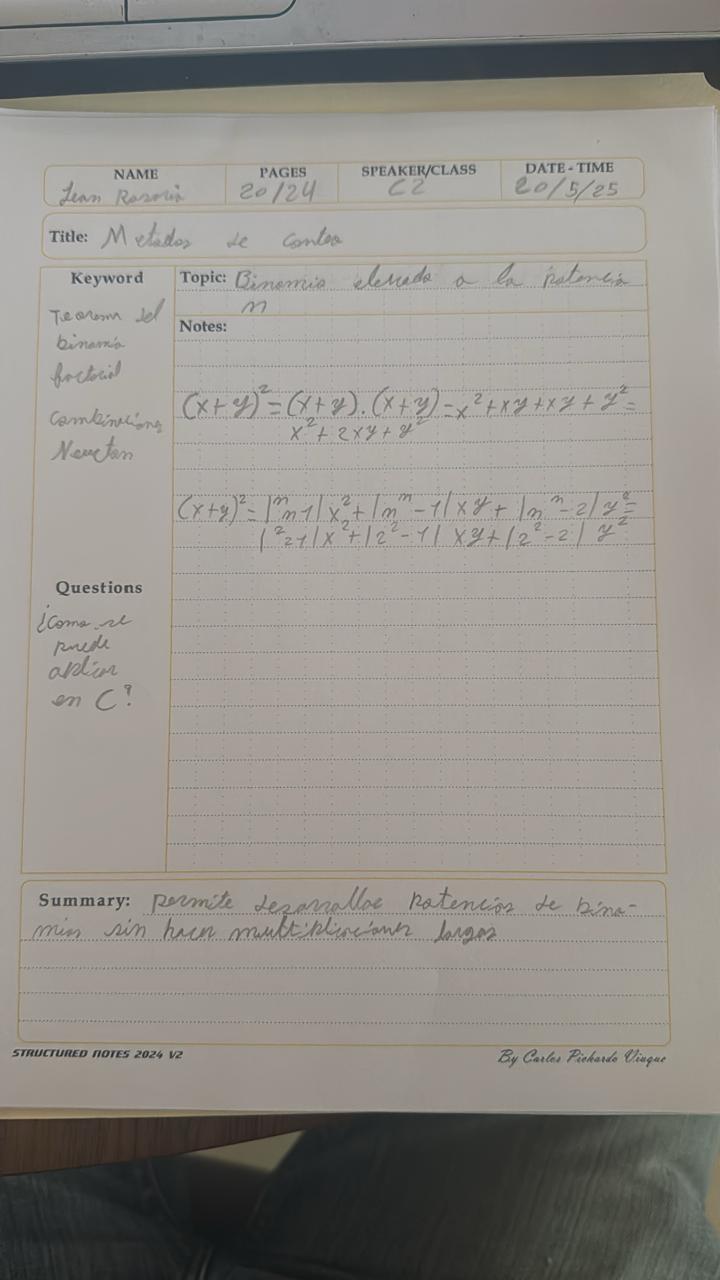 NAME PAGES SPEAKER/CLASS DATE - TIME
Jean Rosario 20/24 C2 20/5/25
Title: Metodos de conteo
Keyword
Teorema del
binomio
factorial
Combinaciones
Newton
Topic: Binomio elevado a la potencia
n
Notes:
(x+y)²=(x+y).(x+y)=x²+xy+xy+y²=
x²+2xy+y²
(x+y)²=|ⁿn-1|x²+|nⁿ-1|xy+|nⁿ-2|y²=
|²2-1|x²+|2²-1|xy+|2²-2|y²
Questions
¿Como se
puede
aplicar
en C?
Summary: permite desarrollar potencias de bino-
mios sin hacer multiplicaciones largas
STRUCTURED NOTES 2024 V2
By Carlos Pichardo Viuque